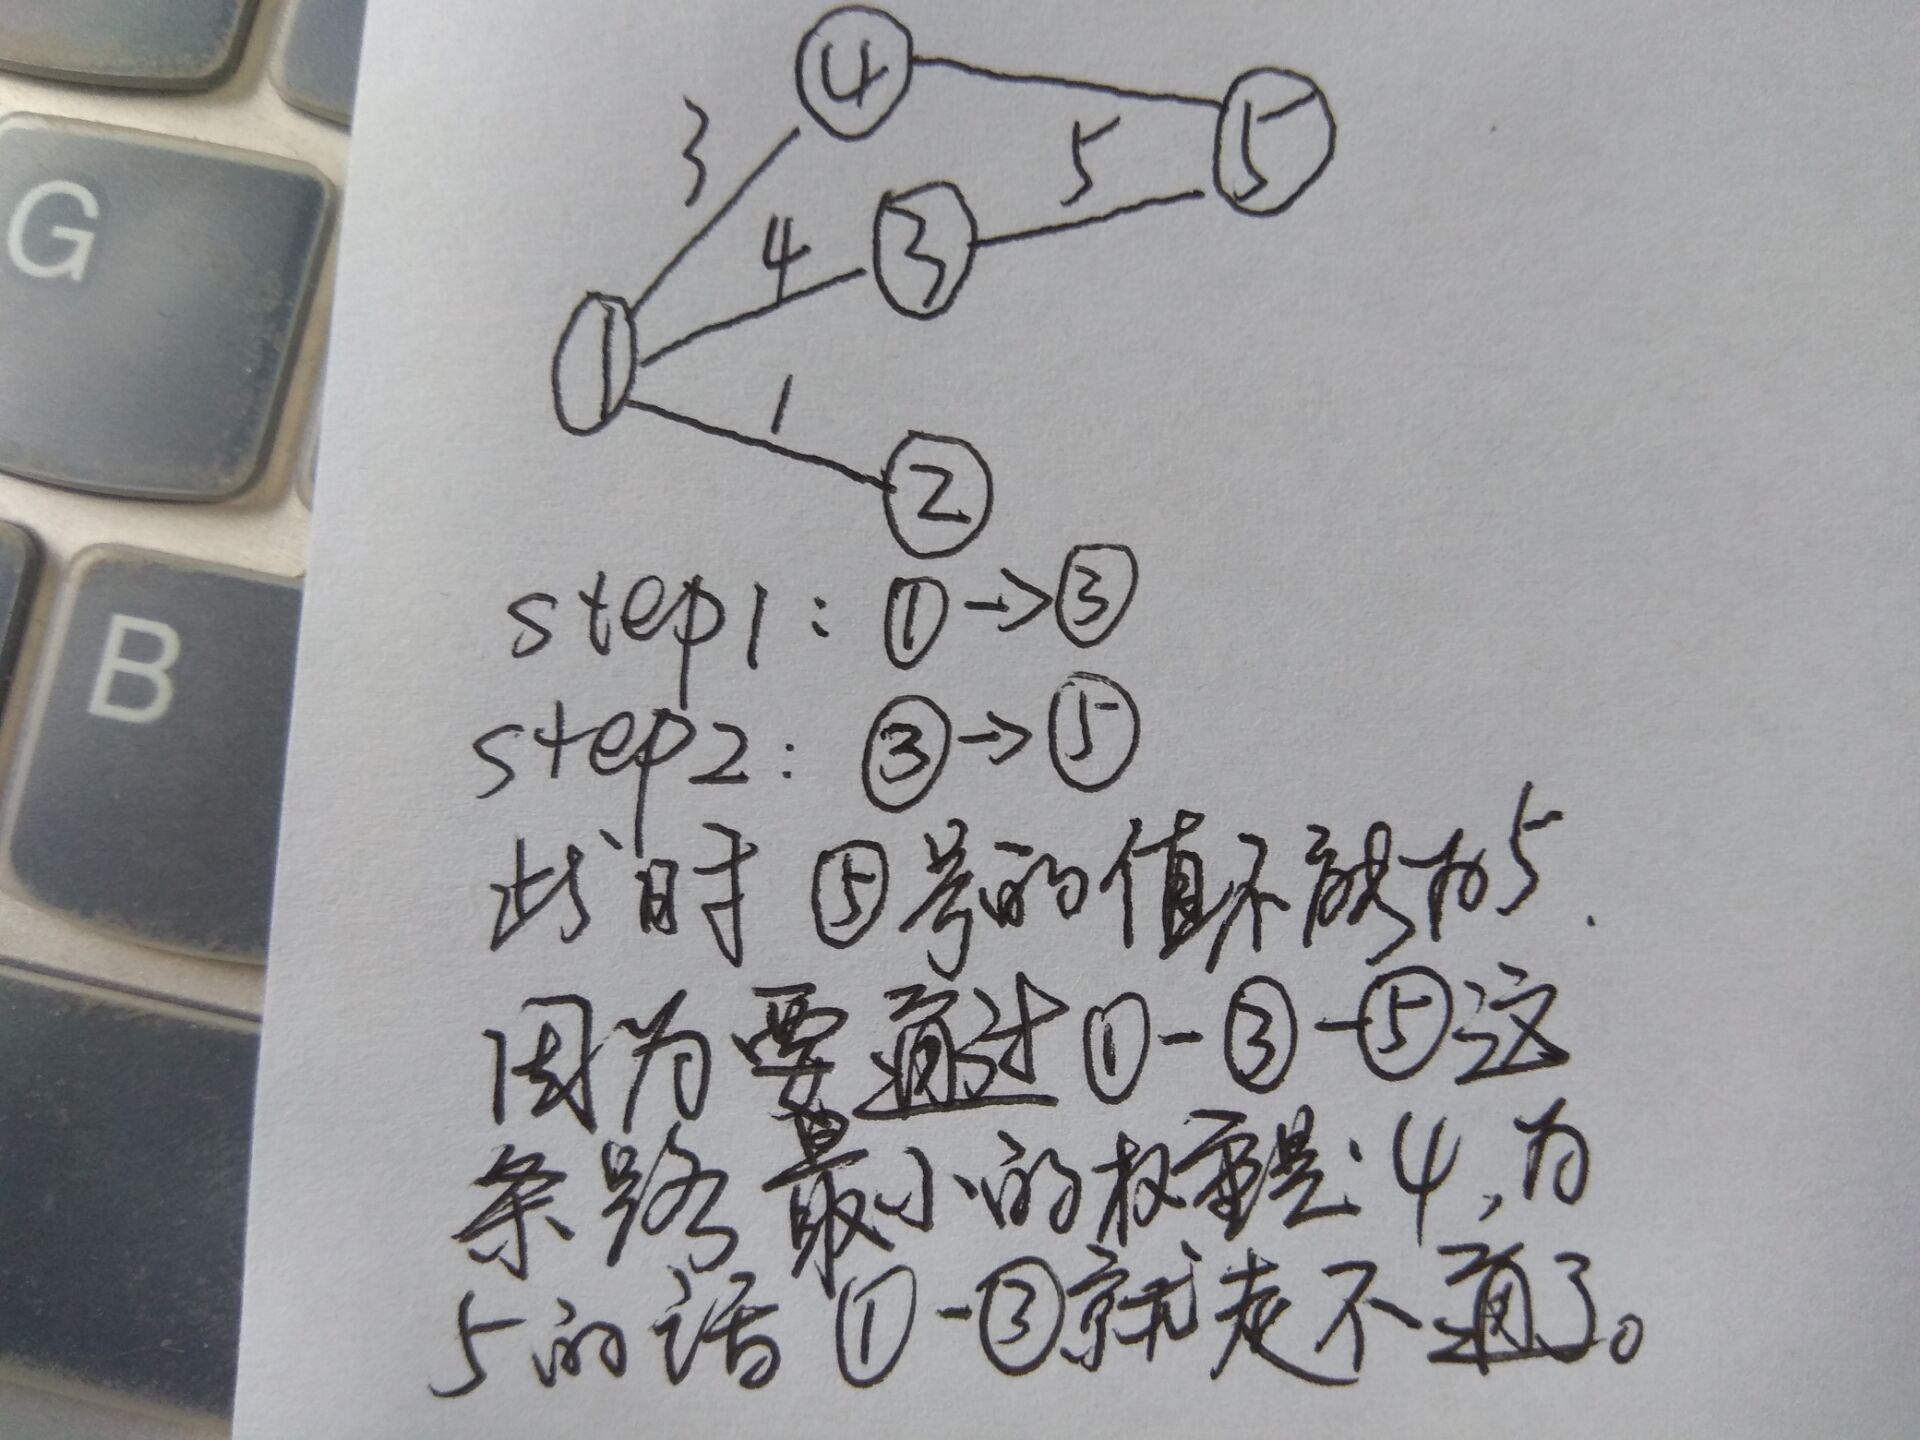 ④
⑤
3
5
4
③
①
1
②
G
B
step1: ①→③
step2: ③→⑤
此时⑤号的值不能为5.
因为要通过①-③-⑤这
条路最小的权重是:4,为
5的话①-③就走不通了。